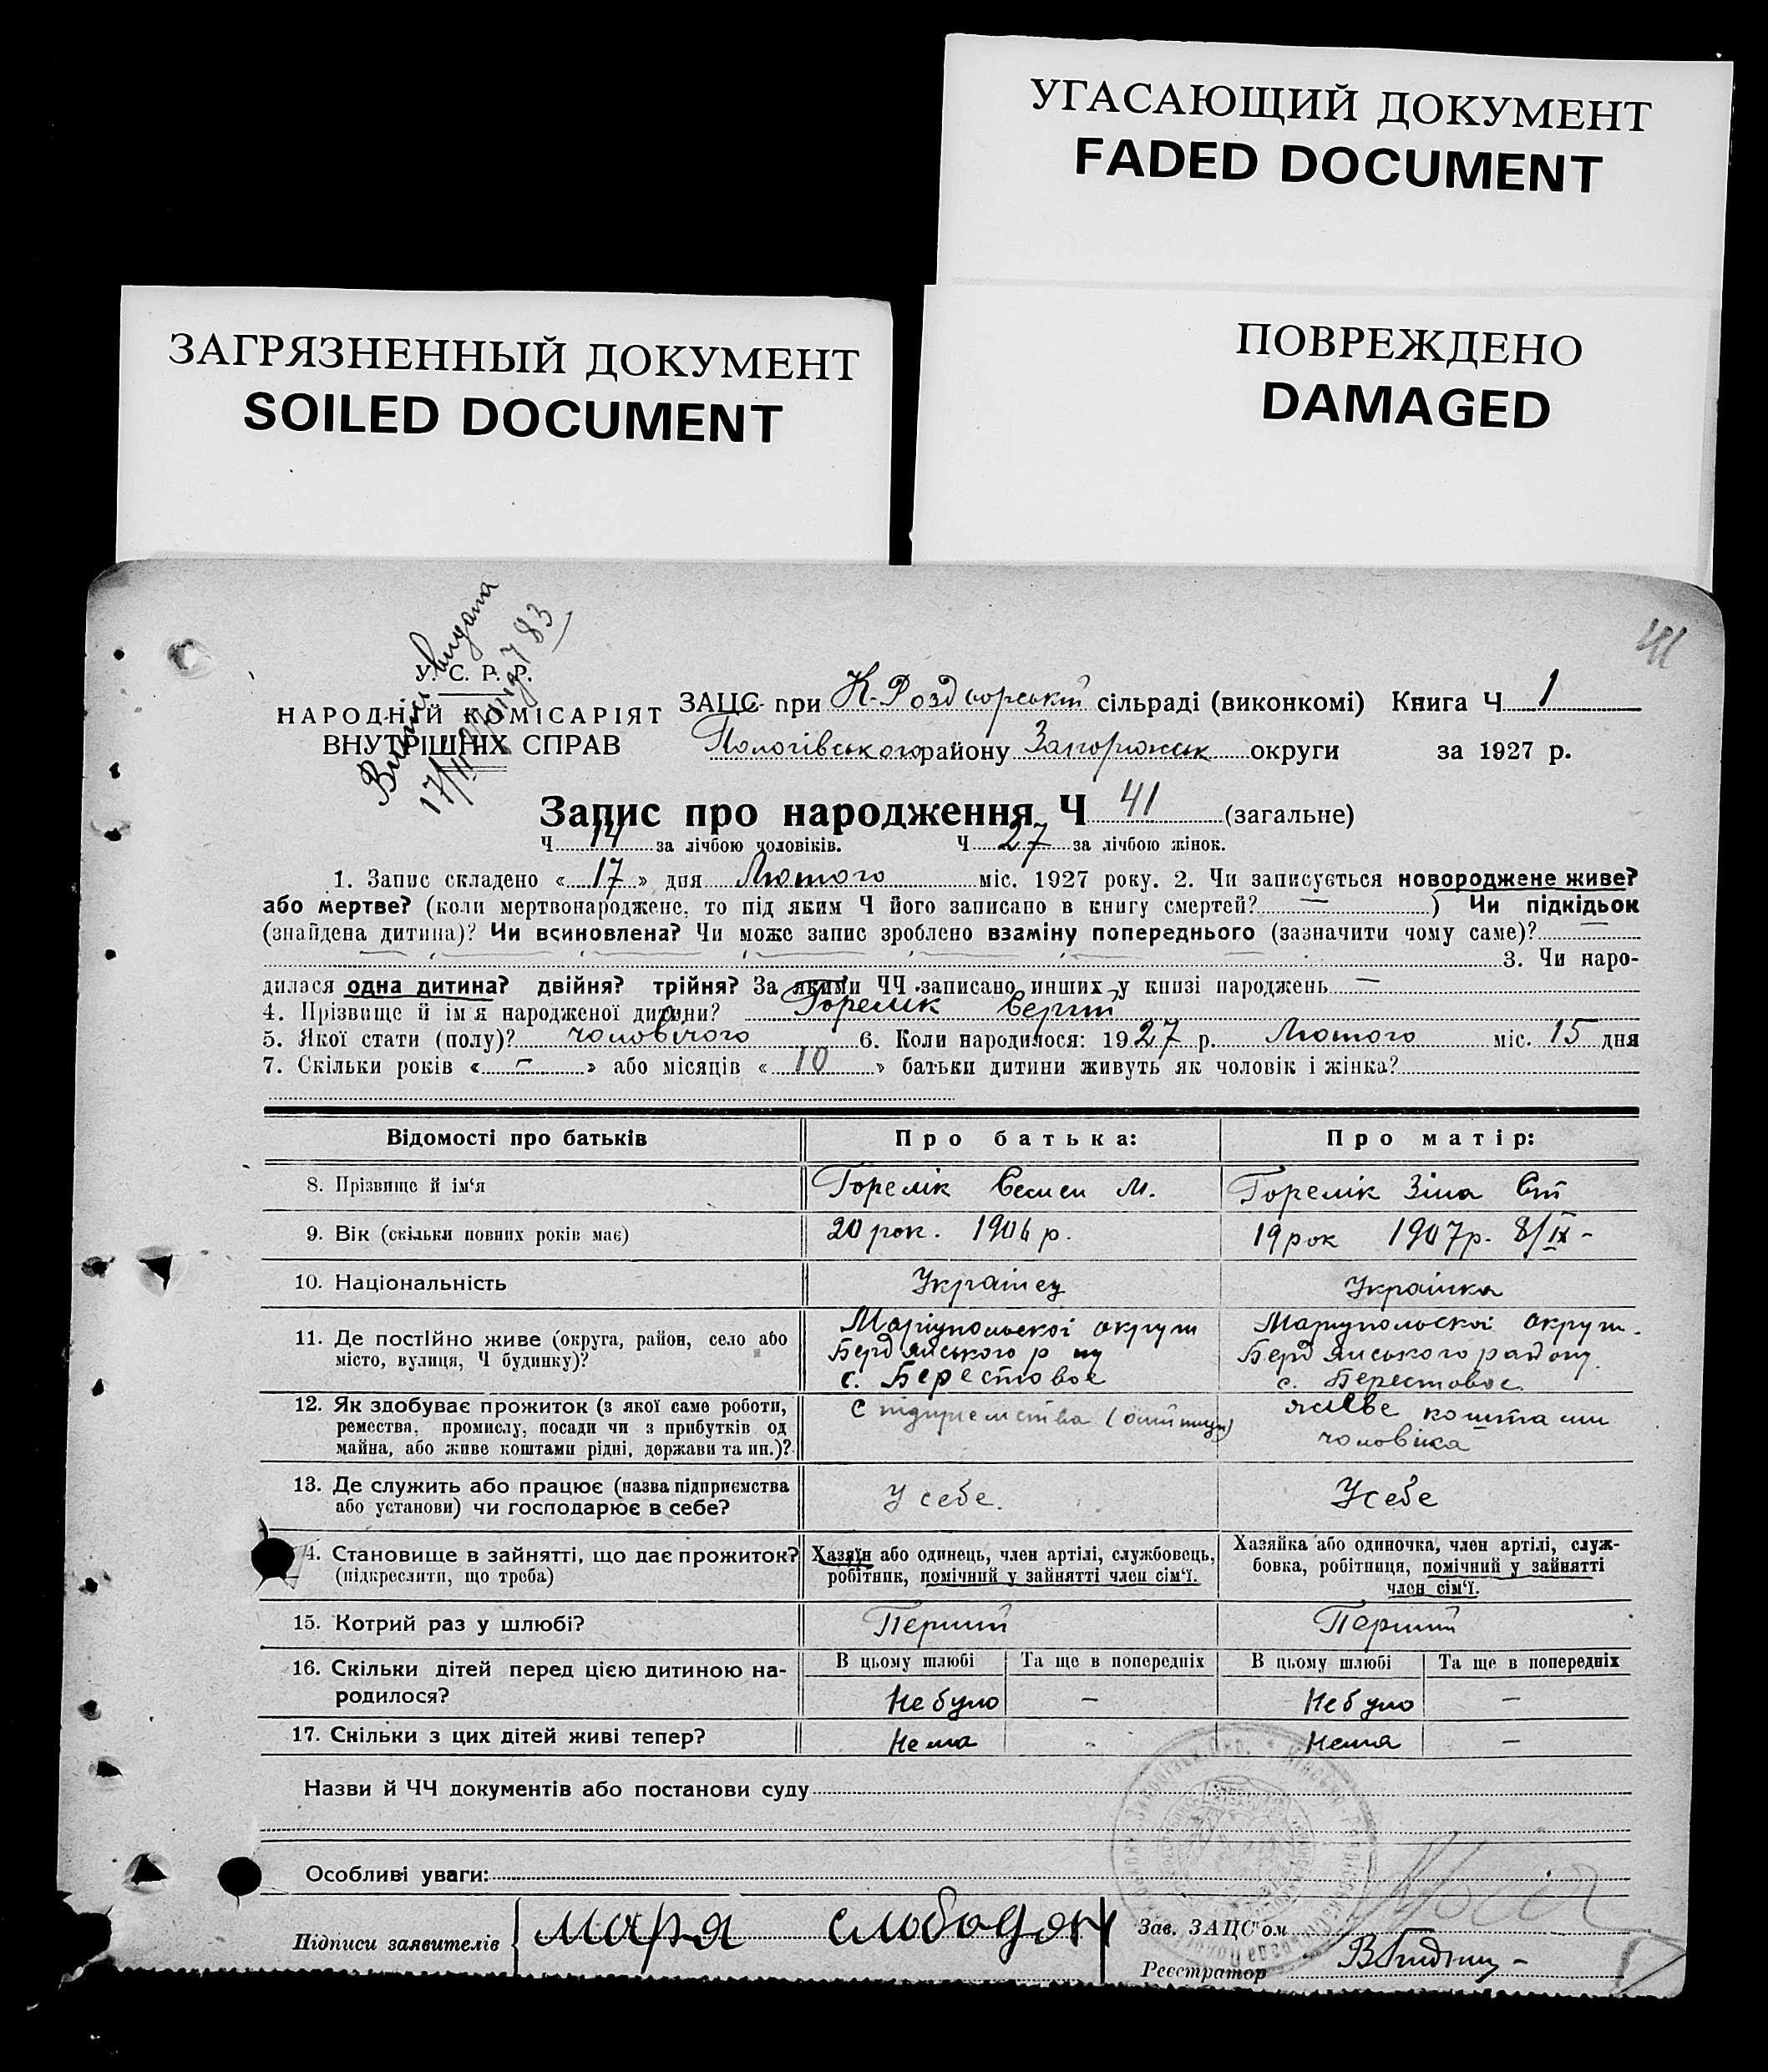 УГАСАЮЩИЙ ДОКУМЕНТ
FADED DOCUMENT
ЗАГРЯЗНЕННЫЙ ДОКУМЕНТ
SOILED DOCUMENT
ПОВРЕЖДЕНО
DAMAGED
41
видана
У. С. Р. Р.
НАРОДНІЙ КОМІСАРІЯТ
ВНУТРІШНІХ СПРАВ
ЗАЦС при К-Роздорській сільраді (виконкомі) Книга Ч 1
Пологівського району Запоріжськ округи за 1927 р.
Запис про народження Ч 41 (загальне)
Ч 14 за лічбою чоловіків. Ч 27 за лічбою жінок.
1. Запис складено « 17 » дня Лютого міс. 1927 року. 2. Чи записується новороджене живе?
або мертве? (коли мертвонароджене, то під яким Ч його записано в книгу смертей? — ) Чи підкідьок
(знайдена дитина)? Чи всиновлена? Чи може запис зроблено взаміну попереднього (зазначити чому саме)?
3. Чи наро-
дилася одна дитина? двійня? трійня? За якими ЧЧ записано инших у книзі народжень —
4. Прізвище й ім'я народженої дитини? Горелік Сергій
5. Якої стати (полу)? чоловічого 6. Коли народилося: 1927 р. Лютого міс. 15 дня
7. Скільки років « — » або місяців « 10 » батьки дитини живуть як чоловік і жінка?
Відомості про батьків Про батька: Про матір:
8. Прізвище й ім'я Горелік Семен М. Горелік Зіна
9. Вік (скільки повних років має) 20 рок. 1906 р. 19 рок 1907 р. 8/IX -
10. Національність Українец Українка
11. Де постійно живе (округа, район, село або
місто, вулиця, Ч будинку)?
Маріупольскої округи
Бердянського р ну
с. Берестовое
Маріупольскої округи.
Бердянського району.
с. Берестовое
12. Як здобуває прожиток (з якої саме роботи,
ремества, промислу, посади чи з прибутків од
майна, або живе коштами рідні, держави та ин.)?
С підприемства
живе коштами
чоловіка
13. Де служить або працює (назва підприємства
або установи) чи господарює в себе?
У себе.
У себе
4. Становище в зайнятті, що дає прожиток?
(підкреслити, що треба)
Хазяїн або одинець, член артілі, службовець,
робітник, помічний у зайнятті член сім'ї.
Хазяйка або одиночка, член артілі, служ-
бовка, робітниця, помічний у зайнятті
член сім'ї.
15. Котрий раз у шлюбі? Перший Перший
16. Скільки дітей перед цією дитиною на-
родилося?
В цьому шлюбі Та ще в попередніх В цьому шлюбі Та ще в попередніх
Не було — Не було —
17. Скільки з цих дітей живі тепер? Нема - Нема —
Назви й ЧЧ документів або постанови суду
Особливі уваги:
Підписи заявителів маря слободян
Зав. ЗАЦС'ом
Реєстратор